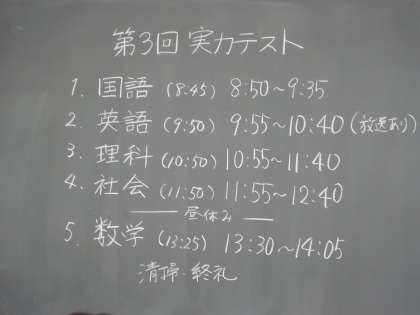 第3回 実力テスト
1. 国語 (8:45) 8:50~9:35
2. 英語 (9:50) 9:55~10:40 (放送あり)
3. 理科 (10:50) 10:55~11:40
4. 社会 (11:50) 11:55~12:40
昼休み
5. 数学 (13:25) 13:30~14:05
清掃・終礼